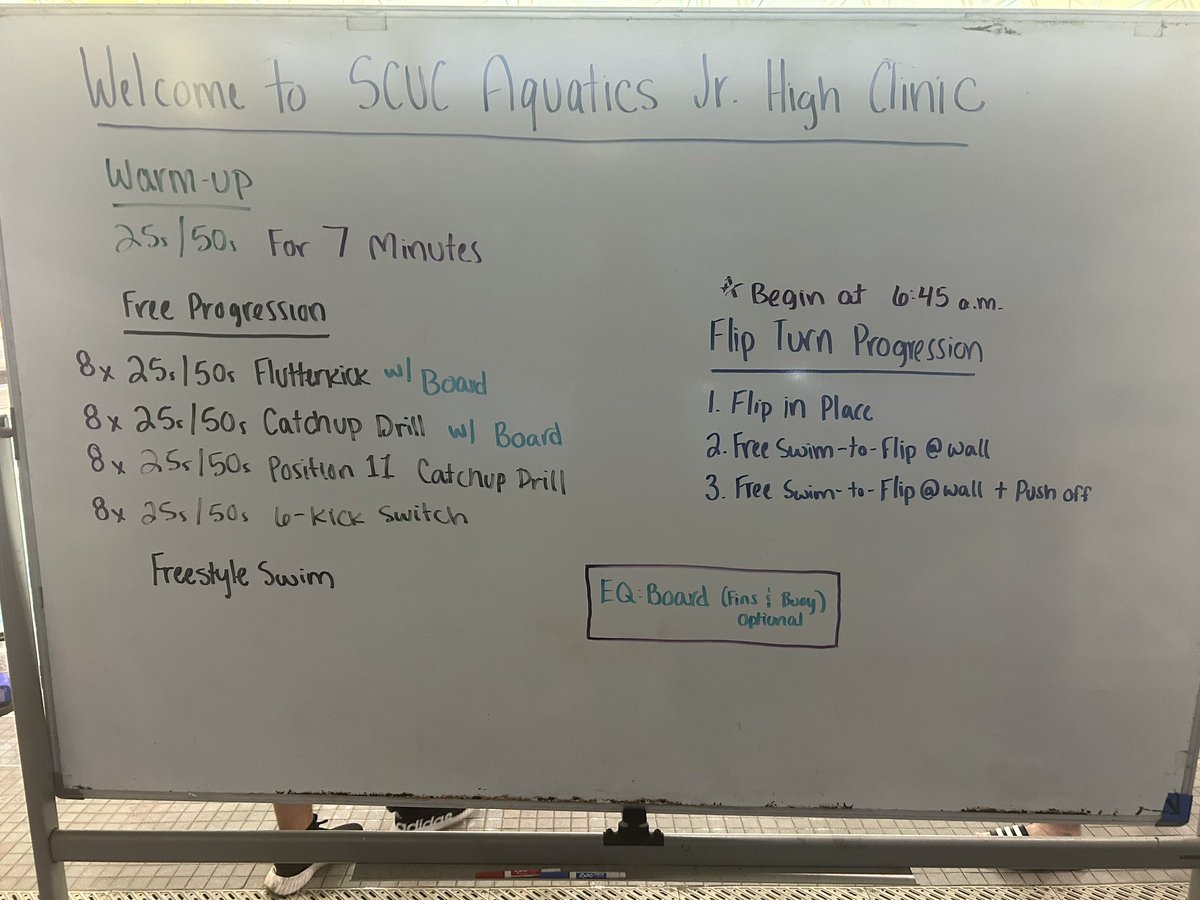 Welcome to SCUC Aquatics Jr. High Clinic
Warm-up
25s/50s For 7 Minutes
Free Progression
8x 25s/50s Flutterkick w/ Board
8x 25s/50s Catchup Drill w/ Board
8x 25s/50s Position 11 Catchup Drill
8x 25s/50s 6-Kick Switch
Freestyle Swim
* Begin at 6:45 a.m.
Flip Turn Progression
1. Flip in Place
2. Free Swim-to-Flip @ wall
3. Free Swim-to-Flip @ wall + Push off
EQ: Board (Fins & Buoy)
optional
adidas